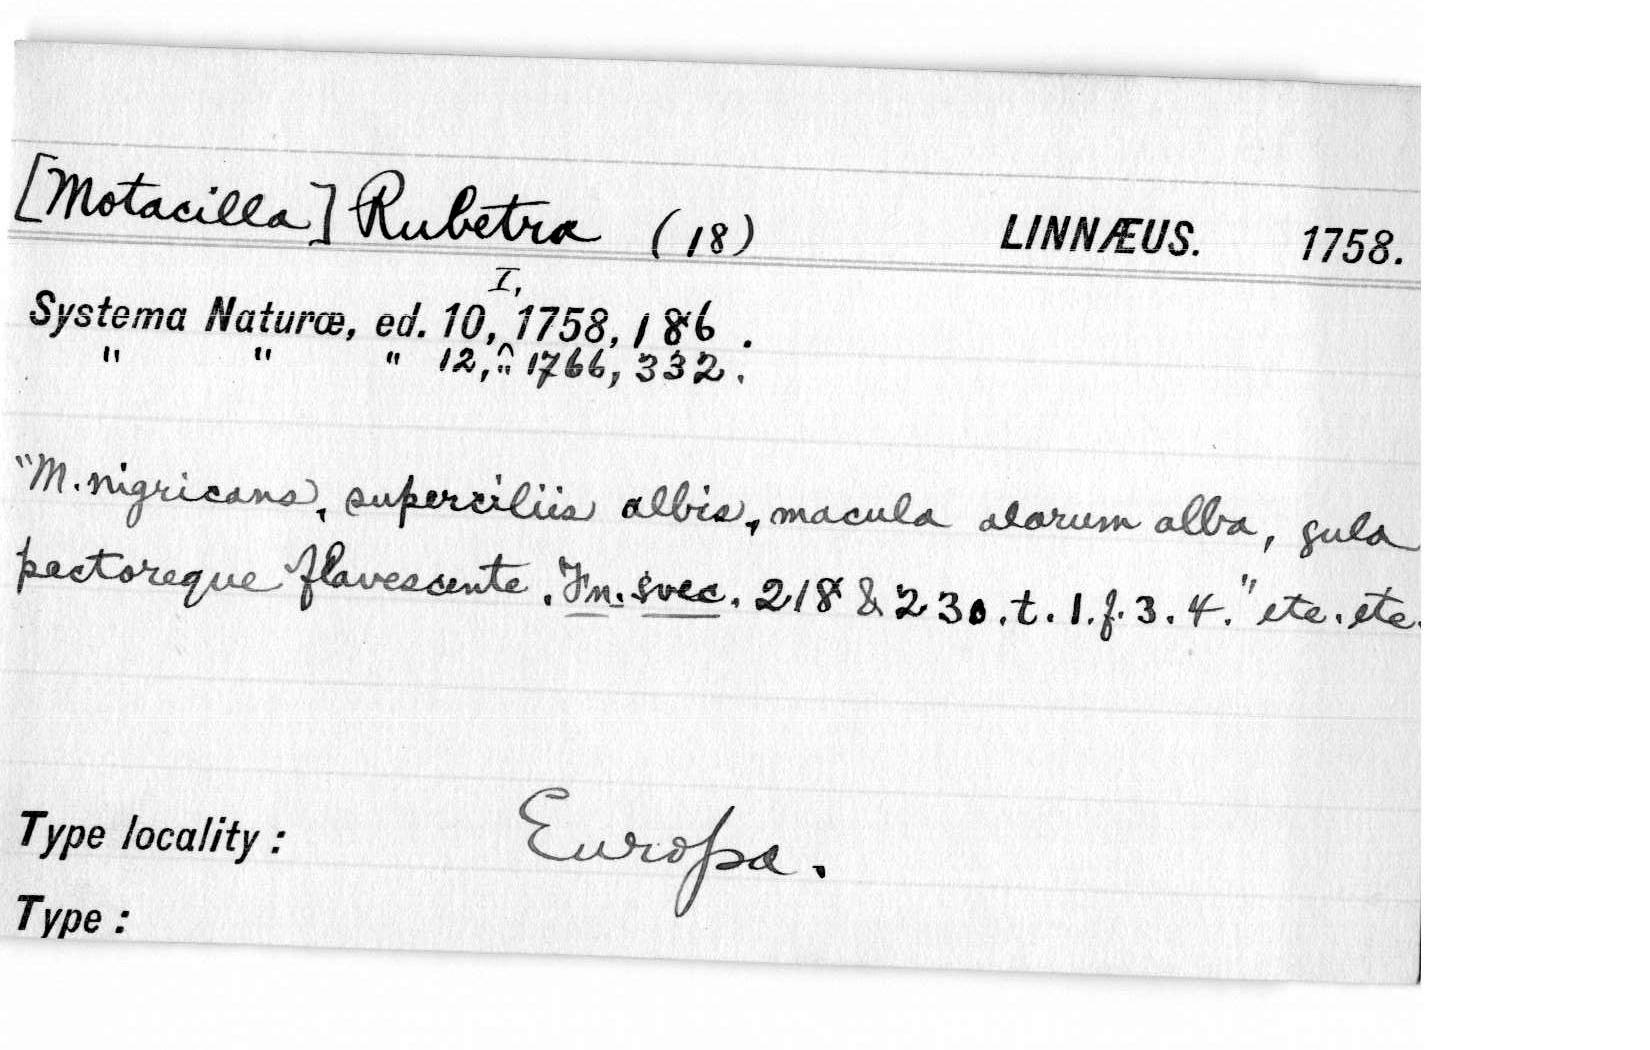 [Motacilla] Rubetra (18) LINNÆUS. 1758.
I,
Systema Naturæ, ed. 10,^ 1758, 186.
" " " 12, " 1766, 332.
"M. nigricans, superciliis albis, macula alarum alba, gula
pectoreque flavescente. Fn. svec. 218 & 230. t. 1. f. 3. 4." etc. etc.
Type locality: Europa.
Type: